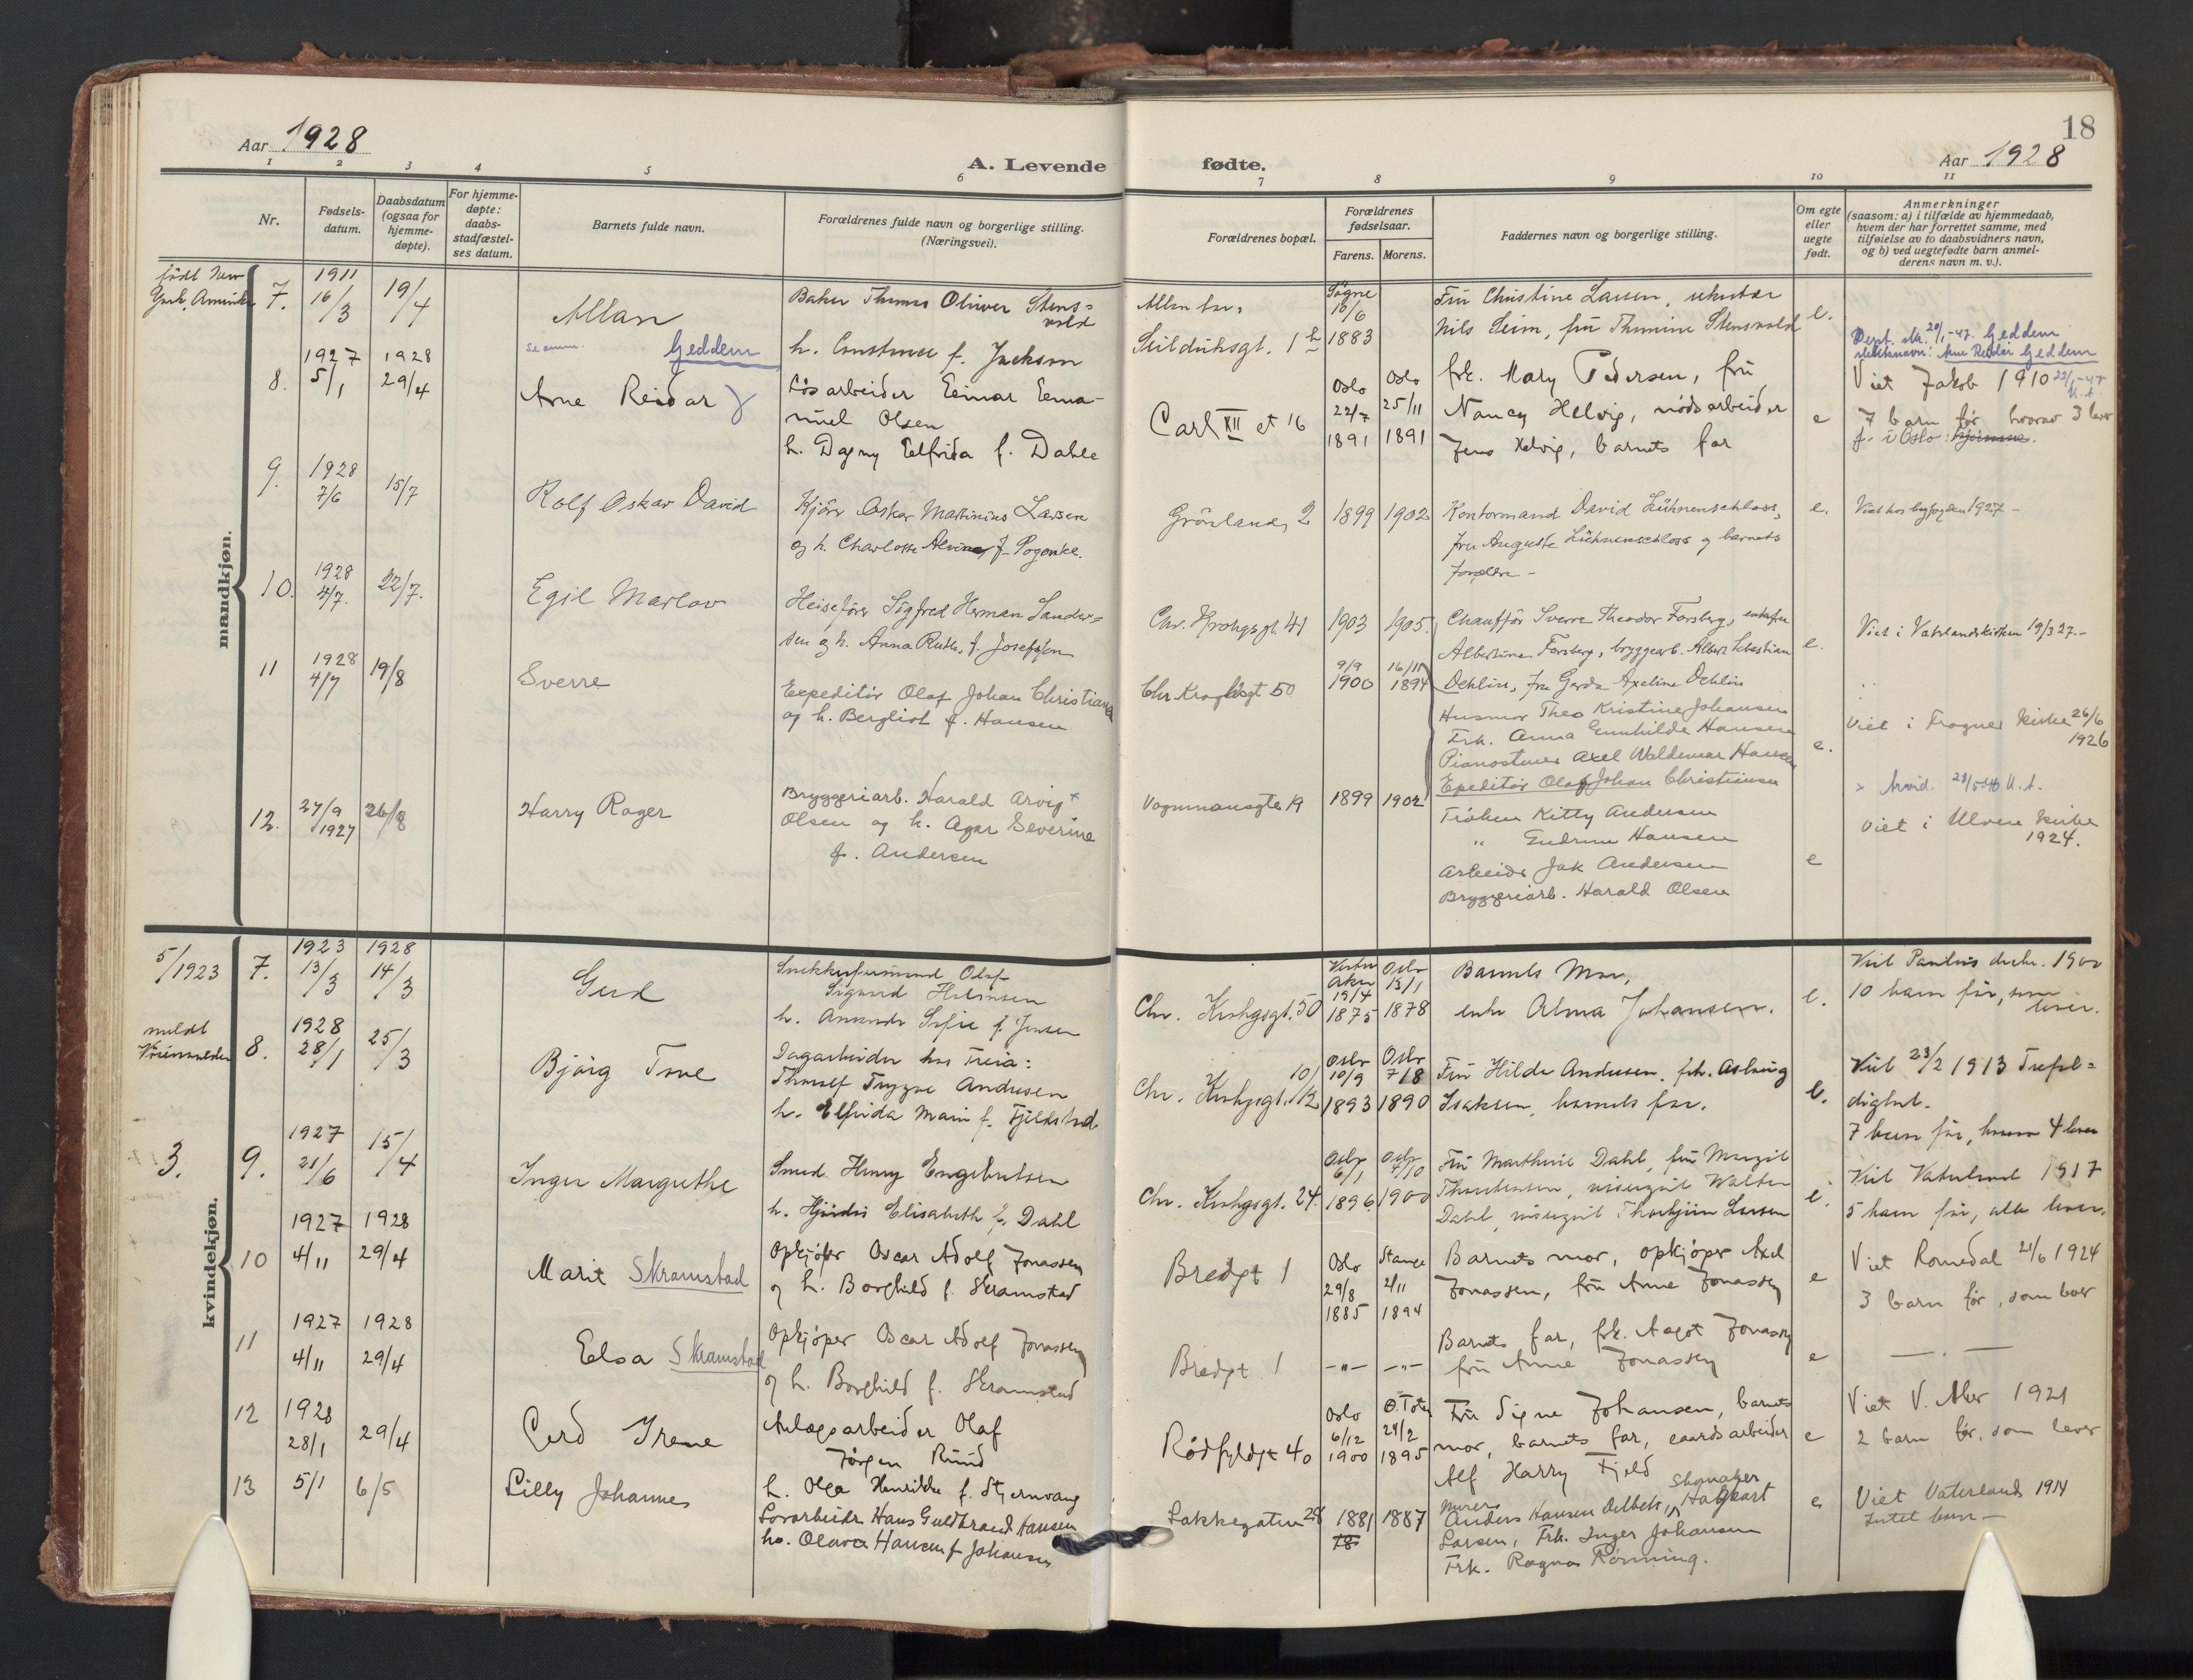 Aar 1928
A. Levende
1 2 3 4 5 6
Nr.
Fødsels-
datum.
Daabsdatum
(ogsaa for
hjemme-
døpte).
For hjemme-
døpte:
daabs-
stadfæstel-
ses datum.
Barnets fulde navn.
Forældrenes fulde navn og borgerlige stilling.
(Næringsvei).
mandkjøn.
født New
7.
1911
16/3
19/4
Allan
Baker Thomas Oliver Stens=
vold
h. Constance f. Jackson
8.
1927
5/1
1928
29/4
Se anm. Geddem
Arne Reidar
Løsarbeider Einar Ema-
nuel Olsen
h. Dagny Elfrida f. Dahle
9.
1928
7/6
15/7
Rolf Oskar David
Kjörer Oskar Martinius Larsen
og h. Charlotte Alvine f. Pogonke.
10.
1928
4/7.
22/7.
Egil Marlov
Heisefører Sigfred Herman Sander=
sen og h. Anna Ruth, f. Josefson
11
1928
4/7
19/8
Sverre
Expeditör Olaf Johan Christiansen
og h. Bergliot f. Hansen
12.
27/9
1927
26/8
Harry Roger
Bryggeriarb. Harald Arvig x
Olsen og h. Agar Severine
f. Andersen
kvindekjøn.
5/1923
7.
1923
13/3
1928
14/3
Gerd
Olaf
Sigurd
h. Amanda Sofie f. Jensen
meldt
8.
1928
28/1
25/3
Bjørg Tove
Dagarbeider hos Freia:
Thoralf Trygve Andresen
h. Elfrida Marie f. Fjeldstad
3.
9.
1927
21/6
15/4
Inger Margrethe
Smed Henry Engebretsen
h. Hjørdis Elisabeth f. Dahl
10
1927
4/11
1928
29/4
Marit Skramstad
Opkjøper Oscar Adolf Jonassen
og h. Borghild f. Skramstad
11
1927
4/11
1928
29/4
Elsa Skramstad
Opkjøper Oscar Adolf Jonassen
og h. Borghild f. Skramstad
12
1928
28/1
29/4
Gerd Irene
Anlægsarbeider Olaf
Jørgen Ruud
h. Olga Henrikke f. Stjernvang
13
5/1
6/5
Lilly Johanne
Hans Guldbrand Hansen
h. Olava Hansen f Johansen
18
Aar 1928
fødte.
7 8 9 10 11
Forældrenes bopæl.
Forældrenes
fødselsaar.
Farens. Morens.
Faddernes navn og borgerlige stilling.
Om egte
eller
uegte
født.
Anmerkninger
(saasom: a) i tilfælde av hjemmedaab,
hvem der har forrettet samme, med
tilføielse av to daabsvidners navn,
og b) ved uegtefødte barn anmel-
derens navn m. v.).
Seilduksgt. 1 h
Søgne
10/6
1883
Fru Christine Larsen,
Nils Seim, fru Thomine Stensvold
e.
Carl XII gt 16
Oslo
22/7
1891
Oslo
25/11
1891
frk. Mary Pedersen, fru
Nancy Helvig, nødsarbeider
Jens Helvig, barnets far
e
Dept. skr. 20/1-47. Geddem
slektsnavn: Arne Reidar Geddem
Viet Jakob 1910 22/1-47
7 barn før hvorav 3 lever
f. i Oslo
Grönland, 2
1899 1902
Kontormand David Lühnenschloss,
fru Auguste Lühnenschloss og barnets
forældre.-
e.
Viet hos byfogden 1927-
Chr. Krohgsgt. 41
1903 1905.
Chauffør Sverre Theodor Forsberg,
Albertine Forsberg, bryggearb. Albert Sebastian
Oehlin, fru Gerda Axeline Oehlin
e.
Viet i Vaterlandskirken 19/3 27.-
Chr Kroghsgt 50
9/9
1900
16/11
1894
Husmor Thea Kristine Johansen
Frk. Anna Gunhilde Hansen
Pianostemer Axel Waldemar Hansen
Expeditör Olaf Johan Christiansen
e.
Viet i Frogner kirke 26/6
1926
Vognmansgt. 19
1899 1902
Frøken Kitty Andersen
" Gudrun Hansen
Arbeider Jak Andersen
Bryggeriarb. Harald Olsen
e
Viet i Ulven kirke
1924.
Chr. Krohgsgt. 50
Vestre
Aker
19/4
1875
Oslo
13/1
1878
Barnets Mor,
enke Alma Johansen.
e.
Viet Paulus decbr. 1900
10 barn før, som
lever.
Chr. Krohgsgt.
Oslo
10/9
1893
Oslo
7/8
1890
Fru Hilda Andersen, frk. Aslaug
Isaksen, barnets far.
e.
Viet 23/2 1913 Trefol=
dighet.
7 barn før, hvorav 4 lever
Chr. Krohgsgt. 24.
Oslo
6/1
1896
Oslo
7/10
1900
Fru Marthine Dahl, fru Margit
Thorstensen, visergut Walter
Dahl, visergut Thorbjörn Larsen
e.
Viet Vaterland 1917
5 barn før, alle lever.
Bredgt 1
Oslo
29/8
1885
Stange
2/11
1894
Barnets mor, opkjøper Axel
Jonassen, fru Anne Jonassen
e
Viet Romedal 21/6 1924
3 barn før, som lever
Bredgt. 1
-"- -"-
Barnets far, frk. Aagot Jonassen
fru Anne Jonassen
e
— " —
Rødfyldgt 40
Oslo
6/12
1900
Ø. Toten
24/2
1895
Fru Signe Johansen, barnets
mor, barnets far, gaardsarbeider
Alf Harry Fjeld
e
Viet V. Aker 1921
2 barn før, som lever
Lakkegaten 28
1881 1887
18
Murer Skomaker
Anders Hansen Delbek, Halfcart
Larsen, Frk. Inger Johansen
Frk. Ragna Rönning.
e
Viet Vaterland 1914
Intet barn -